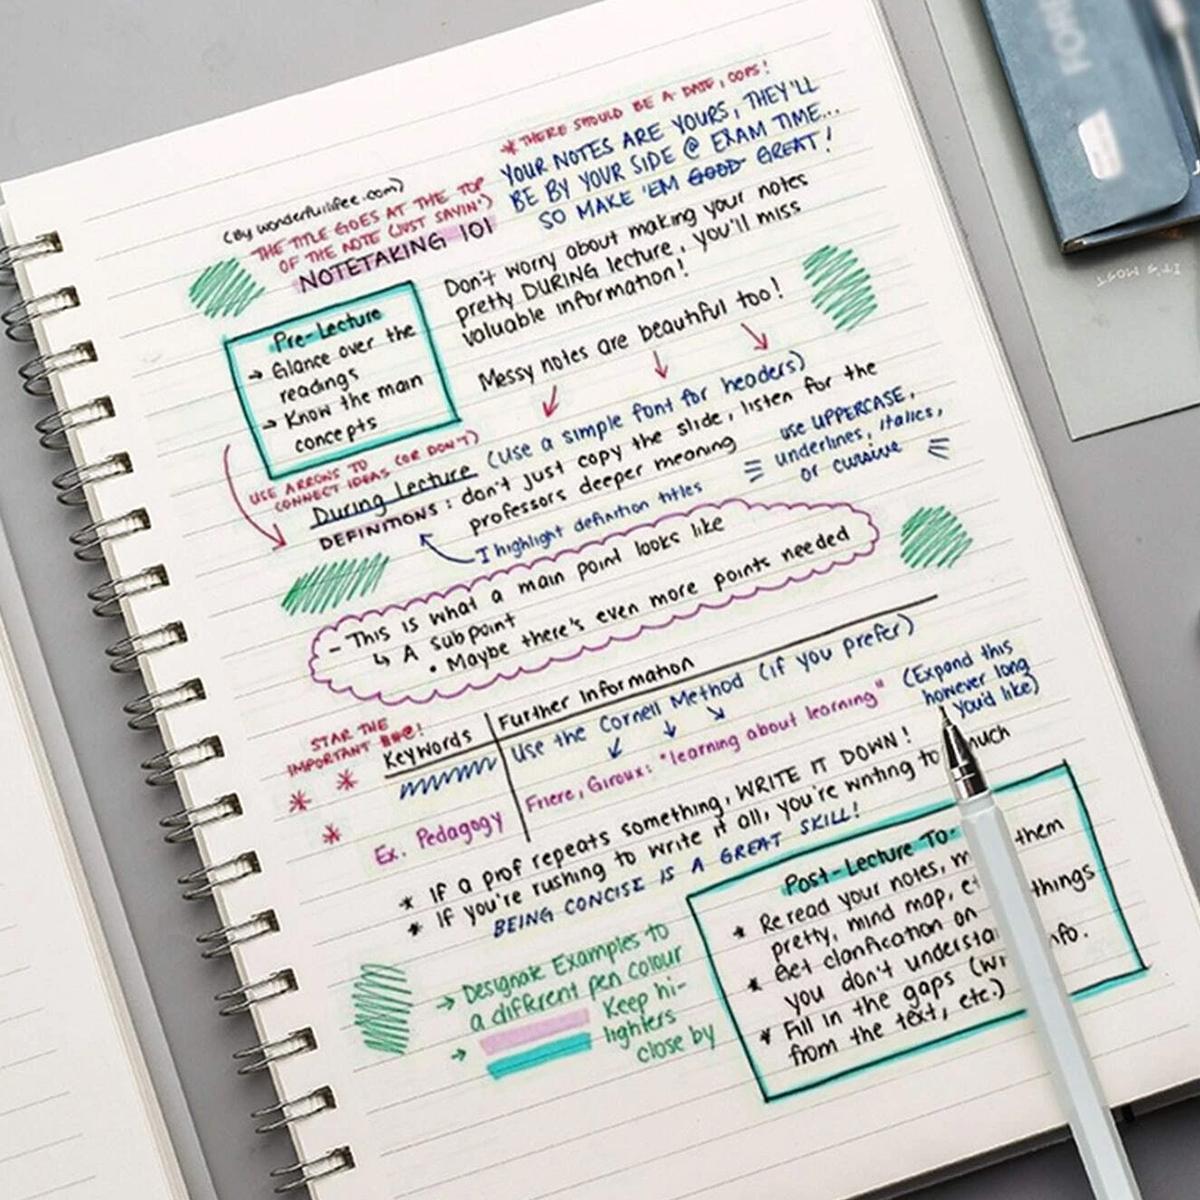 * THERE SHOULD BE A DATE, OOPS!
YOUR NOTES ARE YOURS, THEY'LL
BE BY YOUR SIDE @ EXAM TIME...
SO MAKE 'EM GOOD GREAT!
(By wonderfullifee.com)
THE TITLE GOES AT THE TOP
OF THE NOTE (JUST SAYIN')
NOTETAKING 101
Don't worry about making your notes
pretty DURING lecture, you'll miss
valuable information!
Messy notes are beautiful too!
Pre-Lecture
→ Glance over the
readings
→ Know the main
concepts
USE ARROWS TO
CONNECT IDEAS (OR DON'T)
During Lecture (Use a simple font for headers)
DEFINITIONS: don't just copy the slide, listen for the
professors deeper meaning
use UPPERCASE,
underlines, italics,
or cursive
I highlight definition titles
- This is what a main point looks like
↳ A subpoint
• Maybe there's even more points needed
STAR THE
IMPORTANT
Keywords
Further Information
Use the Cornell Method (if you prefer)
(Expand this
however long
you'd like)
Ex. Pedagogy
Friere, Giroux: "learning about learning"
* If a prof repeats something, WRITE IT DOWN!
* If you're rushing to write it all, you're writing too much
BEING CONCISE IS A GREAT SKILL!
→ Designate Examples to
a different pen colour
→ Keep hi-
lighters
close by
Post-Lecture To-
* Reread your notes, them
pretty, mind map,
* Get clarification on things
you don't info.
* Fill in the gaps
from the text, etc.)
IT'S MOST